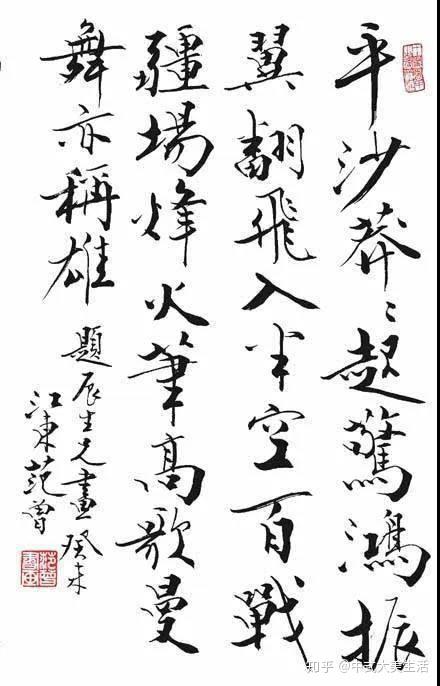 平沙莽〻起驚鴻振
翼翻飛入半空百戰
疆場烽火筆高歌曼
舞亦稱雄
題辰生兄畫癸未
江東范曾
知乎 @中式大美生活